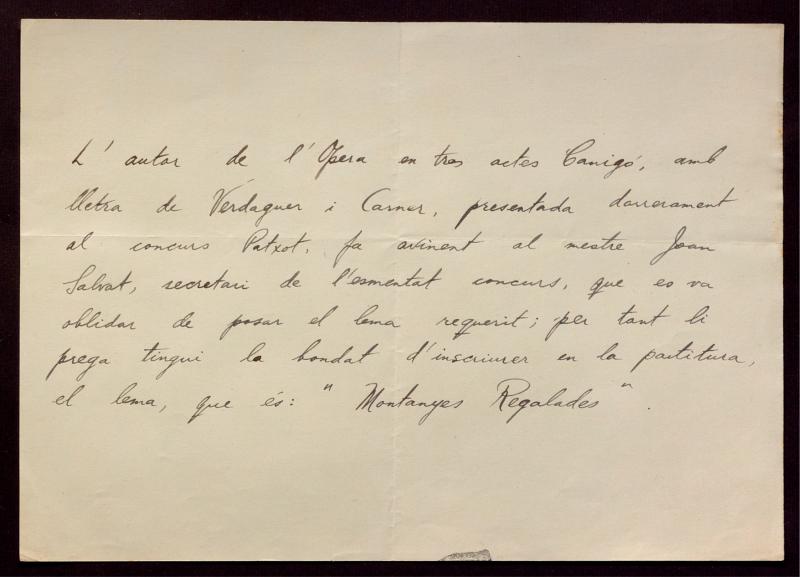 L' autor de l'Opera en tres actes Canigó, amb
lletra de Verdaguer i Carner, presentada darrerament
al concurs Patxot, fa avinent al mestre Joan
Salvat, secretari de l'esmentat concurs, que es va
oblidar de posar el lema requerit; per tant li
prega tingui la bondat d'inscriurer en la partitura,
el lema, que és: " Montanyes Regalades ".